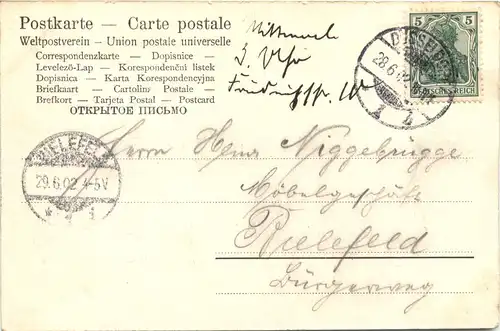 Postkarte — Carte postale
Weltpostverein — Union postale universelle
Correspondenzkarte — Dopisnice —
Levelező-Lap — Korespondenční listek
Dopisnica — Karta Korespondencyjna
Briefkaart — Cartolina Postale —
Brefkort — Tarjeta Postal — Postcard
ОТКРЫТОЕ ПИСЬМО
3 Uhr
5 5
DÜSSELDORF
28.6.02
DEUTSCHES REICH
1 z
BIELEFELD
29.6.02. 4-5V
* 1
Herrn Heinr Niggebrügge
Möbelgeschäft
Bielefeld
Bürgerweg